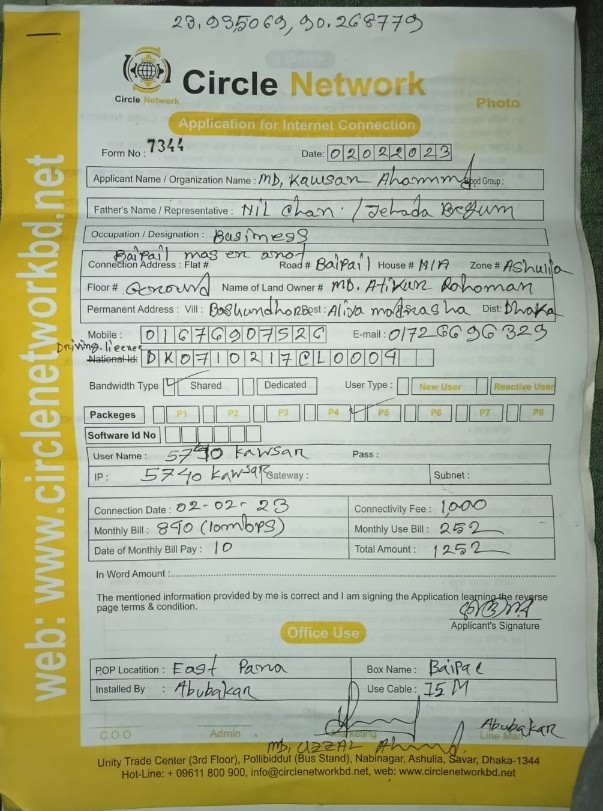 23.935069, 90.268779
Circle Network
Circle Network
Photo
Application for Internet Connection
Form No : 7344
Date: 02022023
Applicant Name / Organization Name : MD, Kawsar Ahammed Blood Group :
Father's Name / Representative : Nil Chan / Jehada Begum
Occupation / Designation : Business
Baipail
Connection Address : Flat # Road # Baipail House # M/A Zone # Ashulia
Floor # Geround Name of Land Owner # MD. Atikur Rohoman
Permanent Address : Vill : Boshundhora Post : Aliya madrasha Dist: Dhaka
Mobile : 01676907526 E-mail : 01726696329
Driving
National Id: DK0710217CL0009
Bandwidth Type Shared Dedicated User Type : New User Reactive User
Packeges P1 P2 P3 P4 P5 P6 P7 P8
Software Id No
User Name : 5740 Kawsar Pass :
IP : 5740 Kawsar Gateway : Subnet :
Connection Date : 02-02-23 Connectivity Fee : 1000
Monthly Bill : 840 (10mbps) Monthly Use Bill : 252
Date of Monthly Bill Pay : 10 Total Amount : 1252
In Word Amount :
The mentioned information provided by me is correct and I am signing the Application learning the reverse
page terms & condition.
Applicant's Signature
Office Use
POP Locatition : East Para Box Name : Baipal
Installed By : Abubakar Use Cable : 15 M
Abubakar
C.O.O Admin Marketing Line Man
MD. UZZAL Ahmed
Unity Trade Center (3rd Floor), Pollibiddut (Bus Stand), Nabinagar, Ashulia, Savar, Dhaka-1344
Hot-Line: + 09611 800 900, info@circlenetworkbd.net, web: www.circlenetworkbd.net
web: www.circlenetworkbd.net